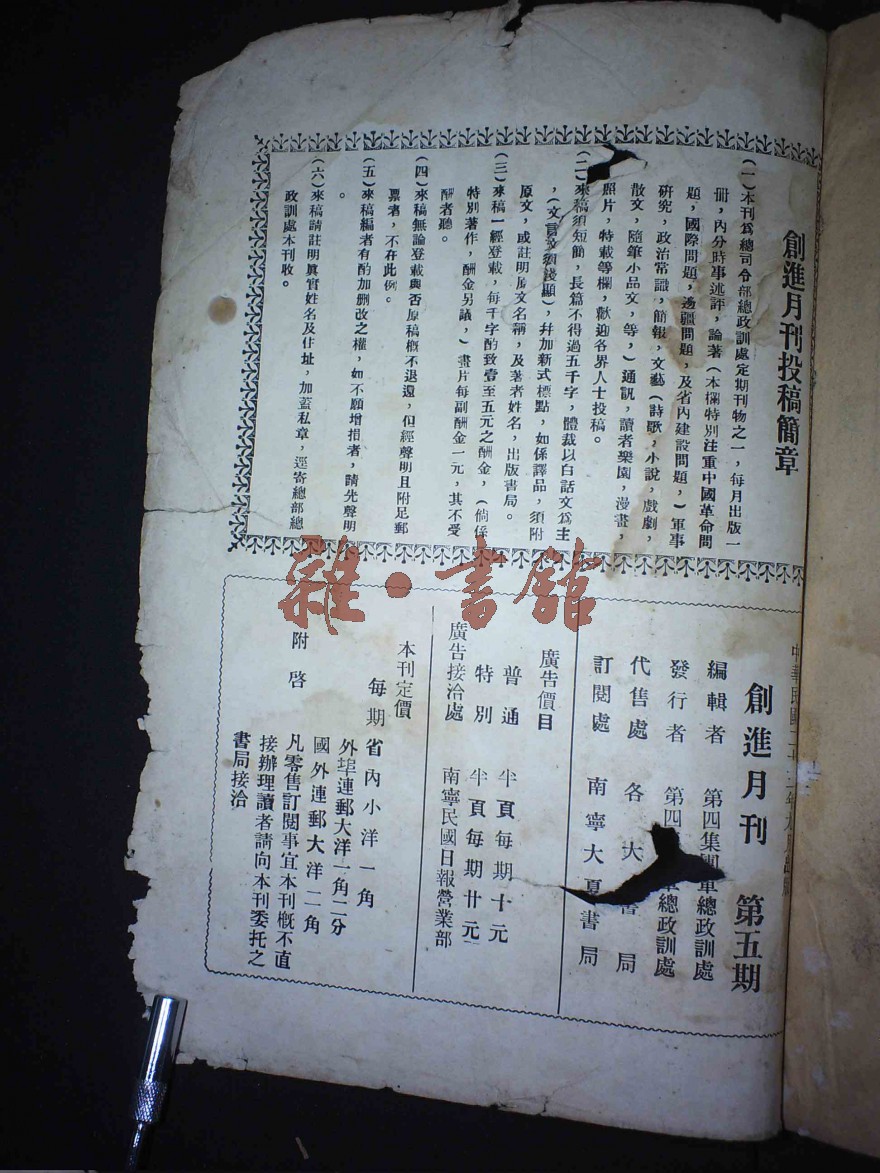 創進月刊投稿簡章
(一)本刊爲總司令部總政訓處定期刊物之一，每月出版一
册，內分時事述評，論著(本欄特別注重中國革命問
題，國際問題，邊疆問題，及省內建設問題，)軍事
硏究，政治常識，簡報，文藝(詩歌，小說，戲劇，
散文，隨筆小品文，等，)通訊，讀者樂園，漫畫，
照片，特載等欄，歡迎各界人士投稿。
(二)來稿須短簡，長篇不得過五千字，體裁以白話文爲主
，(文言文須淺顯)，幷加新式標點，如係譯品，須附
原文，或註明原文名稱，及著者姓名，出版書局。
(三)來稿一經登載，每千字酌致壹至五元之酬金，(倘係
特別著作，酬金另議，)畫片每副酬金一元，其不受
酬者聽。
(四)來稿無論登載與否原稿槪不退還，但經聲明且附足郵
票者，不在此例。
(五)來稿編者有酌加删改之權，如不願增損者，請先聲明
。
(六)來稿請註明眞實姓名及住址，加蓋私章，逕寄總部總
政訓處本刊收。
雜·書館
中華民國二十
創進月刊 第五期
編輯者 第四集團軍總政訓處
發行者 第四 軍總政訓處
代售處 各大書局
訂閱處 南寧大夏書局
廣告價目
普通 半頁每期十元
特別 半頁每期廿元
廣告接洽處 南寧民國日報營業部
本刊定價
每期省內小洋一角
外埠連郵大洋一角二分
國外連郵大洋二角
附啓 凡零售訂閱事宜本刊槪不直
接辦理讀者請向本刊委托之
書局接洽